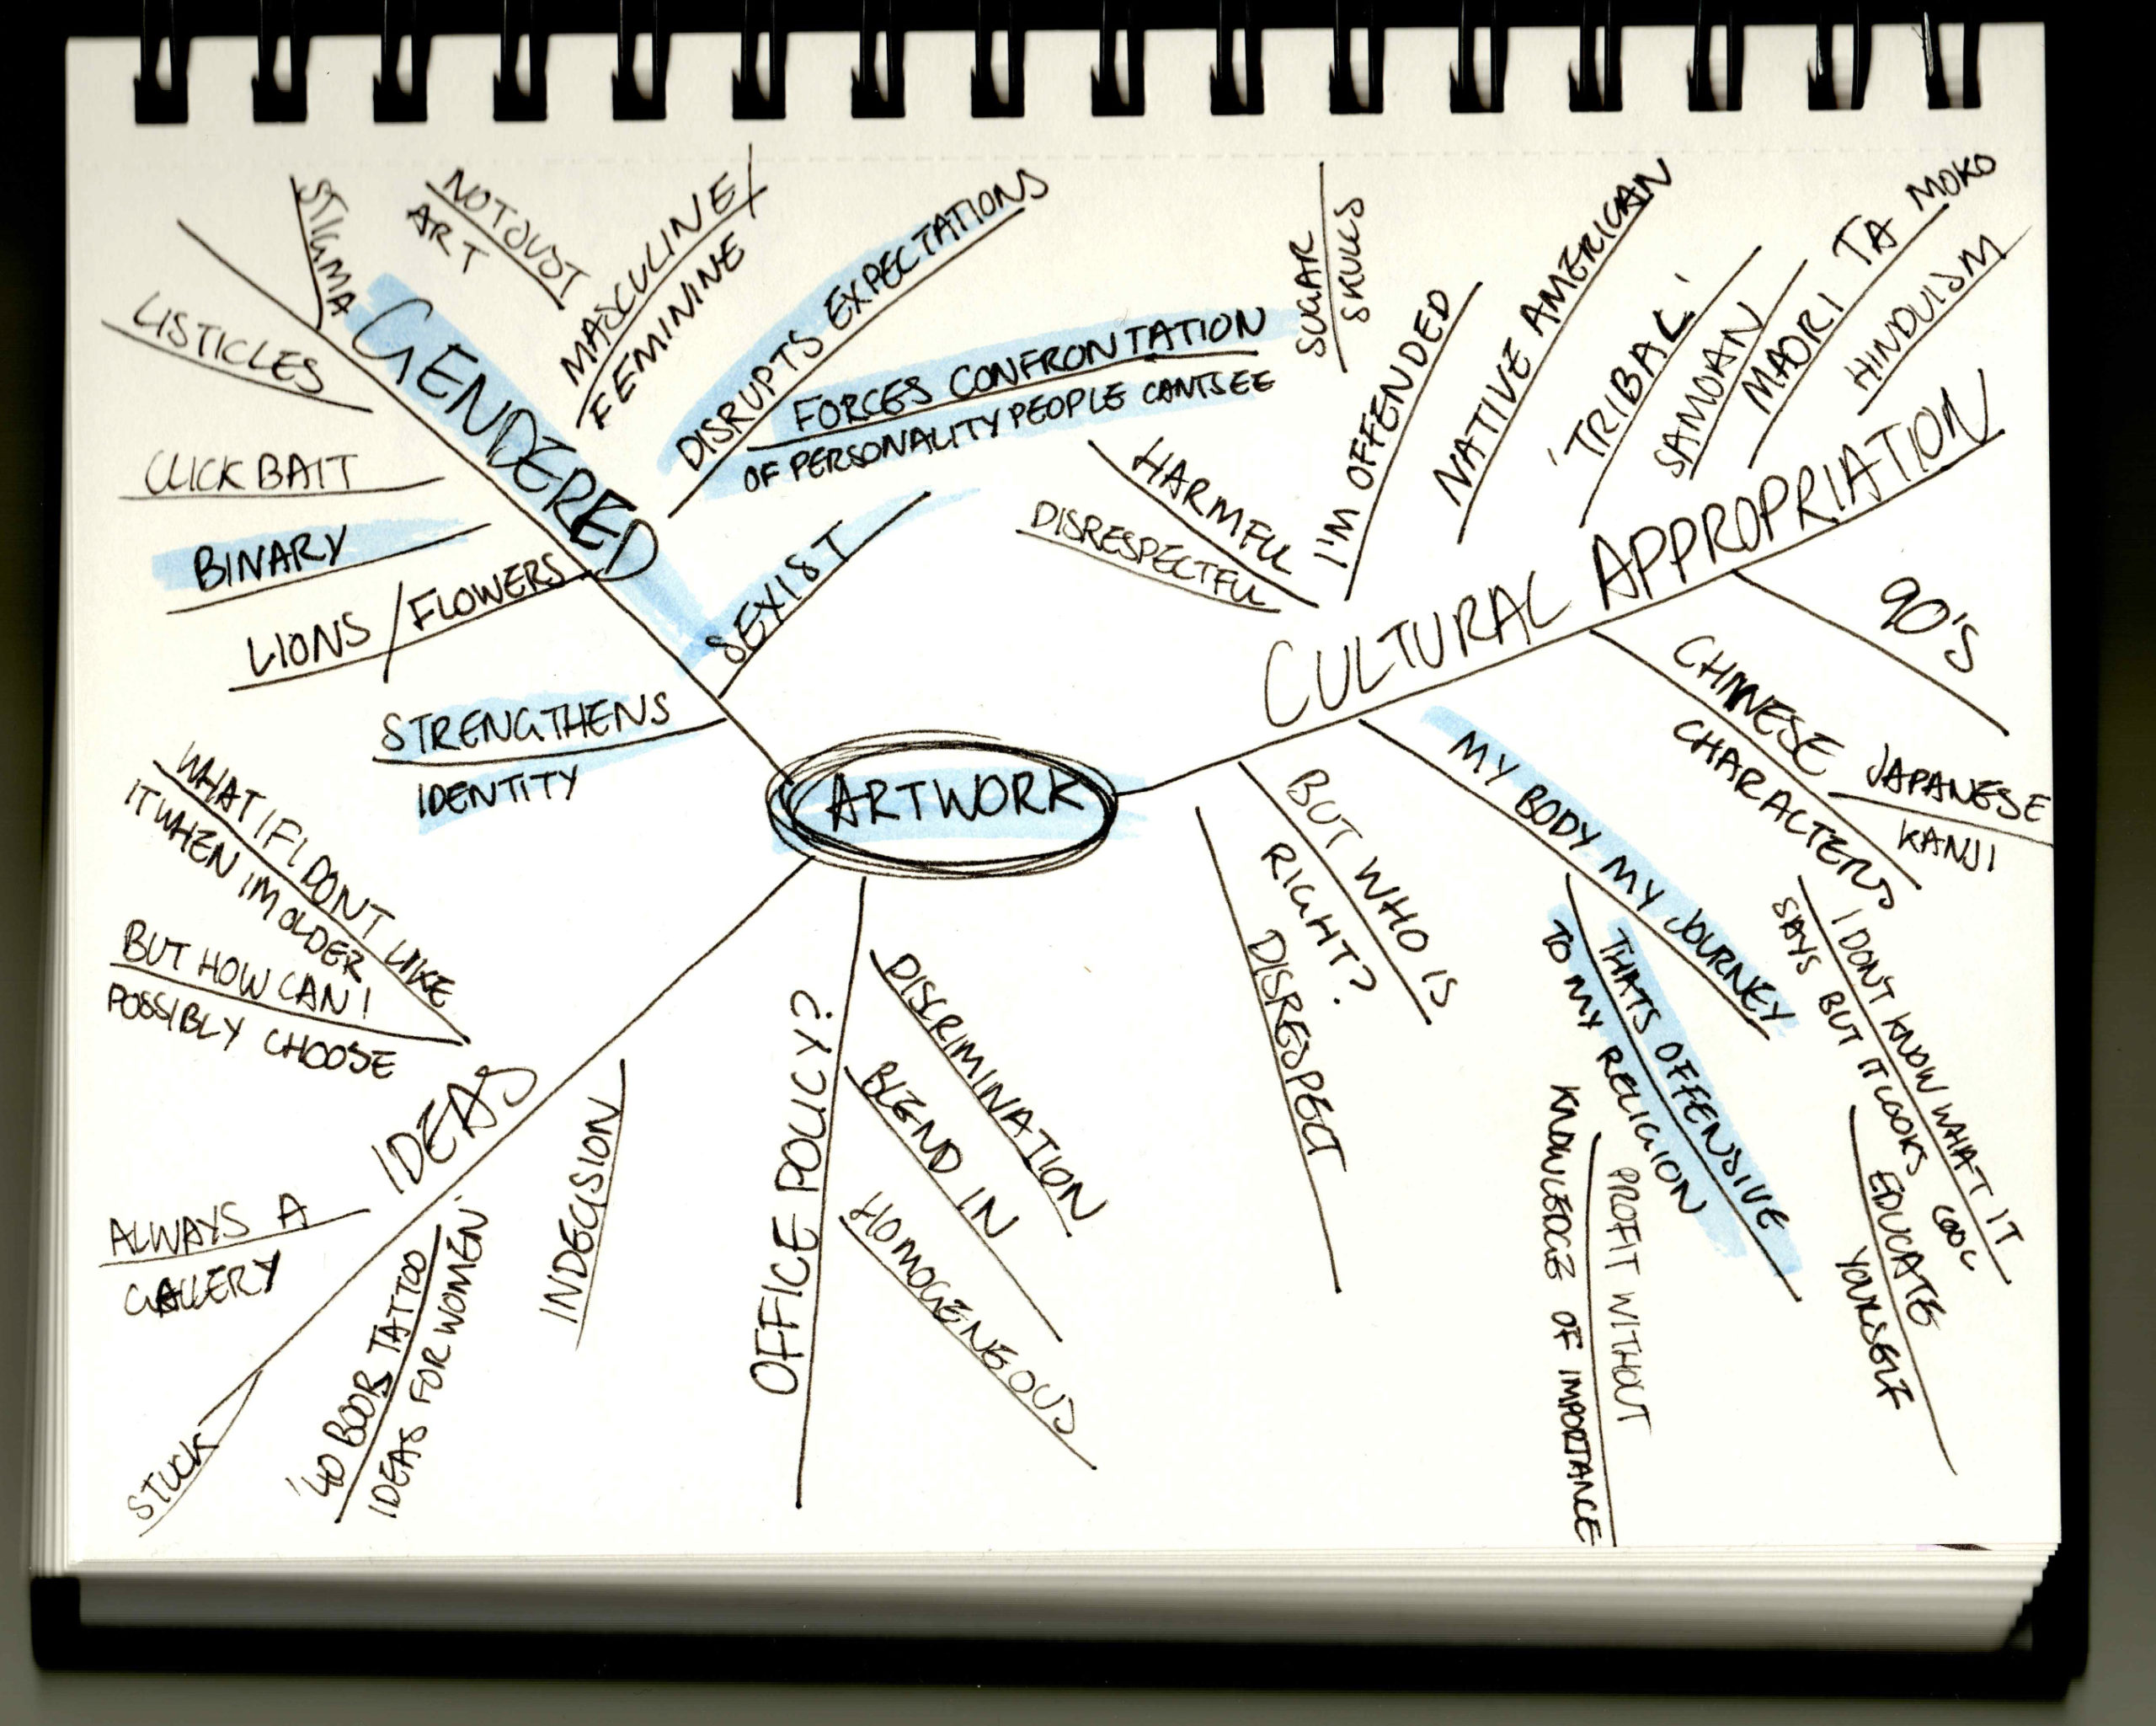 ARTWORK
GENDERED
STIGMA
NOT JUST
ART
MASCULINE/
FEMININE
DISRUPTS EXPECTATIONS
FORCES CONFRONTATION
OF PERSONALITY PEOPLE CANT SEE
SEXIST
LISTICLES
CLICK BAIT
BINARY
LIONS/FLOWERS
STRENGTHENS
IDENTITY
CULTURAL APPROPRIATION
SUGAR
SKULLS
HARMFUL
DISRESPECTFUL
I'M OFFENDED
NATIVE AMERICAN
'TRIBAL'
SAMOAN
MAORI TA MOKO
HINDUISM
90'S
CHINESE
CHARACTERS
JAPANESE
KANJI
MY BODY MY JOURNEY
THATS OFFENSIVE
TO MY RELIGION
I DONT KNOW WHAT IT
SAYS BUT IT LOOKS COOL
EDUCATE
YOURSELF
PROFIT WITHOUT
KNOWLEDGE OF IMPORTANCE
BUT WHO IS
RIGHT?
DISRESPECT
OFFICE POLICY?
DISCRIMINATION
BLEND IN
HOMOGENEOUS
IDEAS
WHAT IF I DONT LIKE
IT WHEN IM OLDER
BUT HOW CAN I
POSSIBLY CHOOSE
ALWAYS A
GALLERY
STUCK
'40 BOOB TATTOO
IDEAS FOR WOMEN'
INDECISION